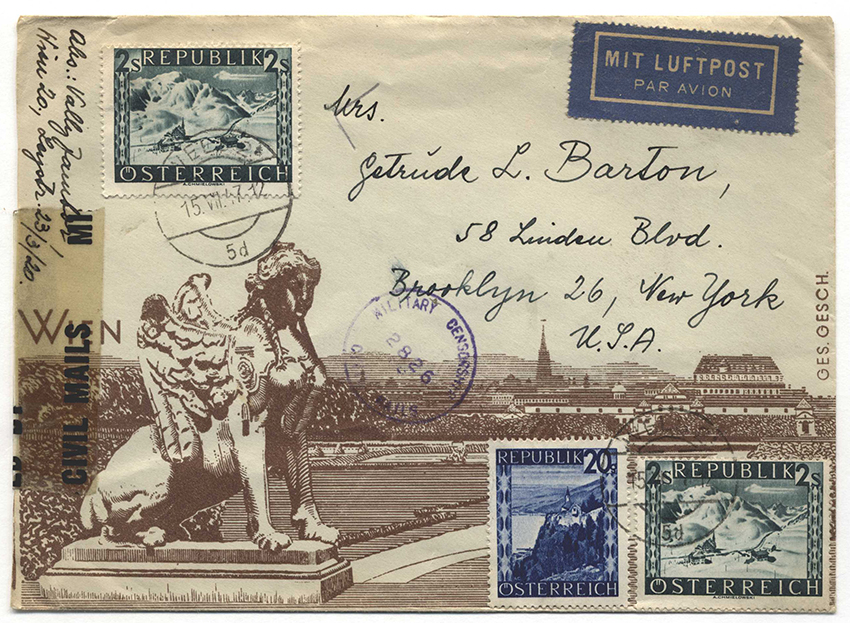 Abs.: Vally
Wien 20, 23/3/20.
REPUBLIK
2s 2s
ÖSTERREICH
A.CHMIELOWSKI
15.VII.47.12
5d
MIT LUFTPOST
PAR AVION
Mrs.
Getrude L. Barton,
58 Linden Blvd.
Brooklyn 26, New York
U.S.A.
MILITARY CENSORSHIP
2826
CIVIL MAILS
WIEN
CIVIL MAILS
GES. GESCH.
REPUBLIK
20g
ÖSTERREICH
REPUBLIK
2s 2s
ÖSTERREICH
A.CHMIELOWSKI
5d